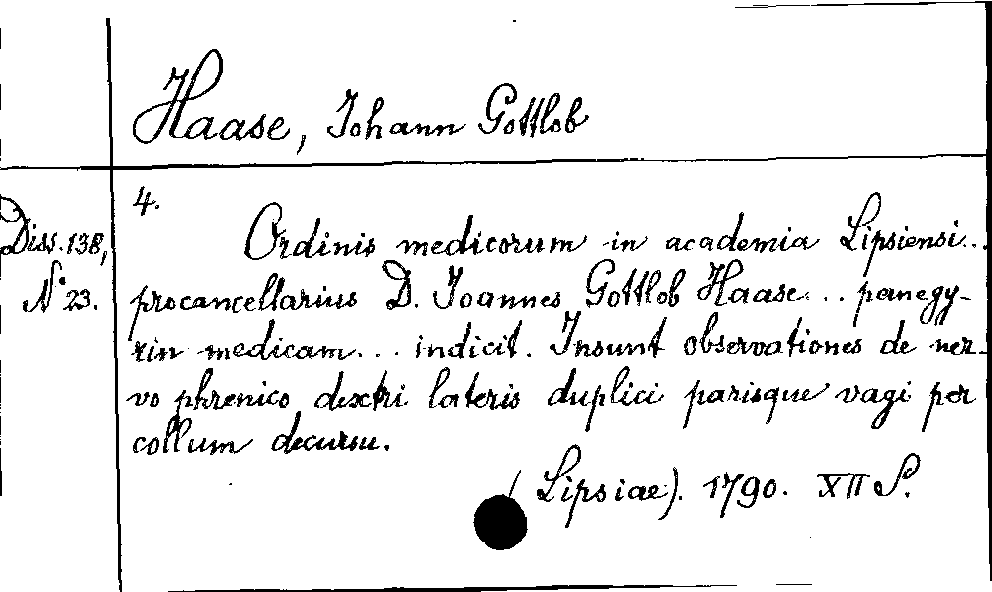 Haase, Johann Gottlob
4.
Diss. 138,
N° 23.
Ordinis medicorum in academia Lipsiensi...
procancellarius D. Joannes Gottlob Haase... panegy-
rin medicam... indicit. Insunt observationes de ner-
vo phrenico dextri lateris duplici parisque vagi per
collum decursu.
(Lipsiae). 1790. XII S.